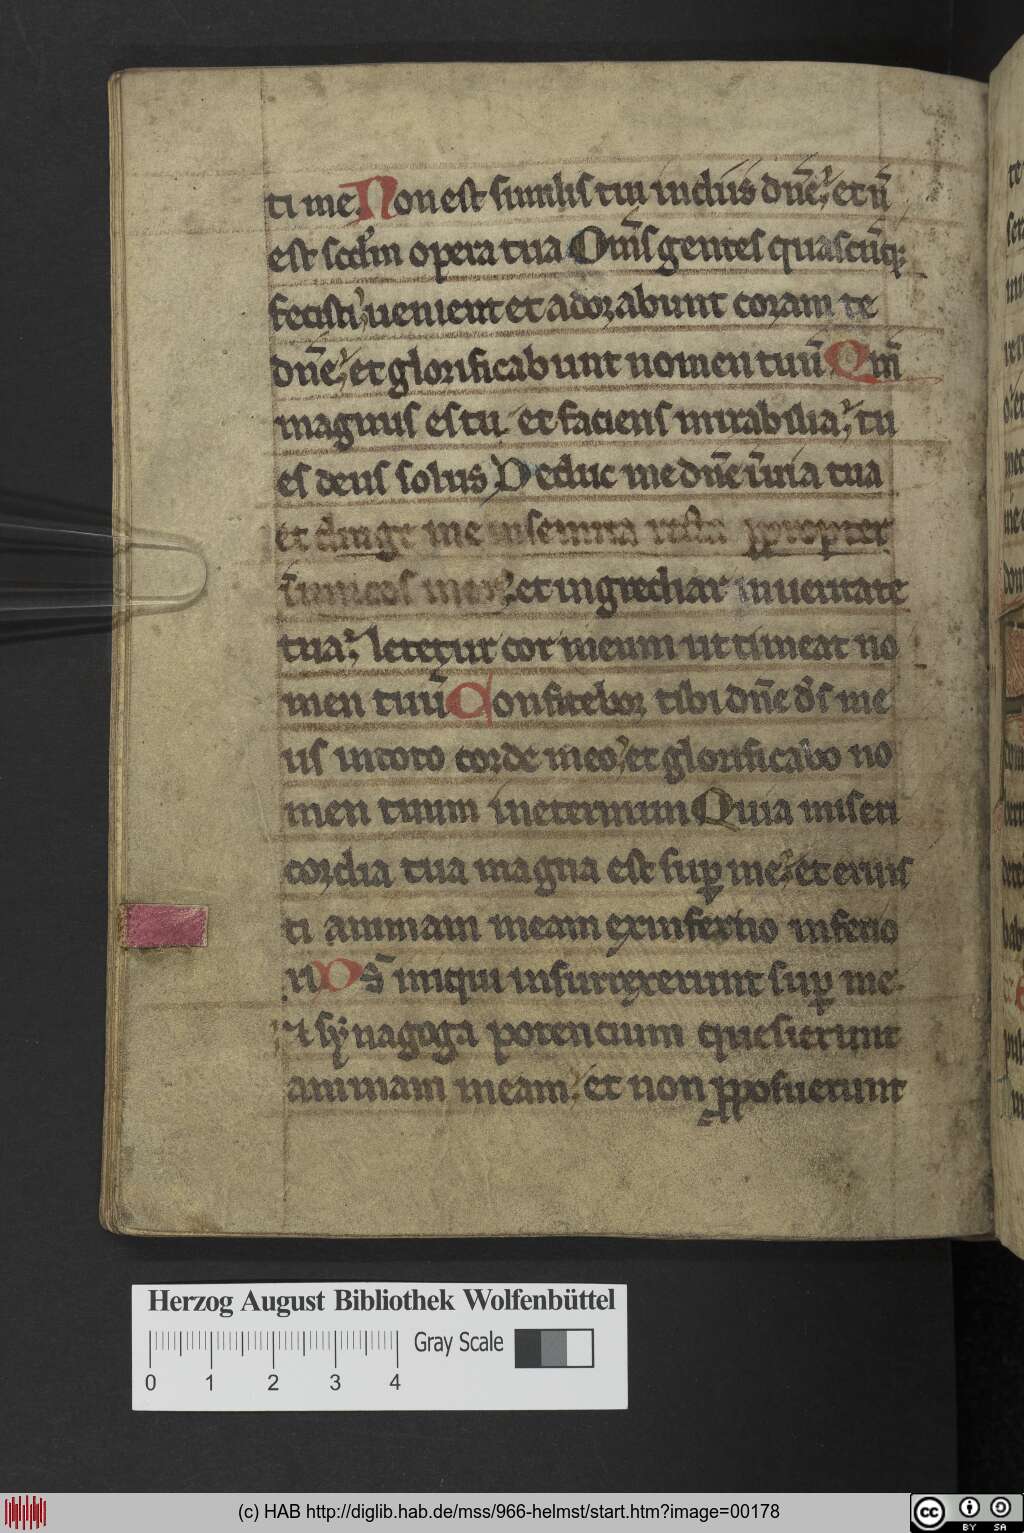 ti me. Non est similis tui in diis dn̄e; et n̄
est scdm̄ opera tua Om̄s gentes quascūq;
fecisti; uenient et adorabunt coram te
dn̄e; et glorificabunt nomen tuū Qm̄
magnus es tu et faciens mirabilia; tu
es deus solus Deduc me dn̄e ī uia tua
et dirige me in semita propter
inimicos meos; et ingrediar in ueritate
tua; letetur cor meum ut timeat no
men tuū Confitebor tibi dn̄e ds̄ me
us in toto corde meo; et glorificabo no
men tuum in eternum Quia miseri
cordia tua magna est sup̄ me; et eruis
ti animam meam ex inferno inferio
ri Ds̄ iniqui insurrexerunt sup̄ me
⁊ synagoga potencium quesierunt
animam meam; et non pposuerunt
Herzog August Bibliothek Wolfenbüttel
Gray Scale
0 1 2 3 4
(c) HAB http://diglib.hab.de/mss/966-helmst/start.htm?image=00178
cc BY SA